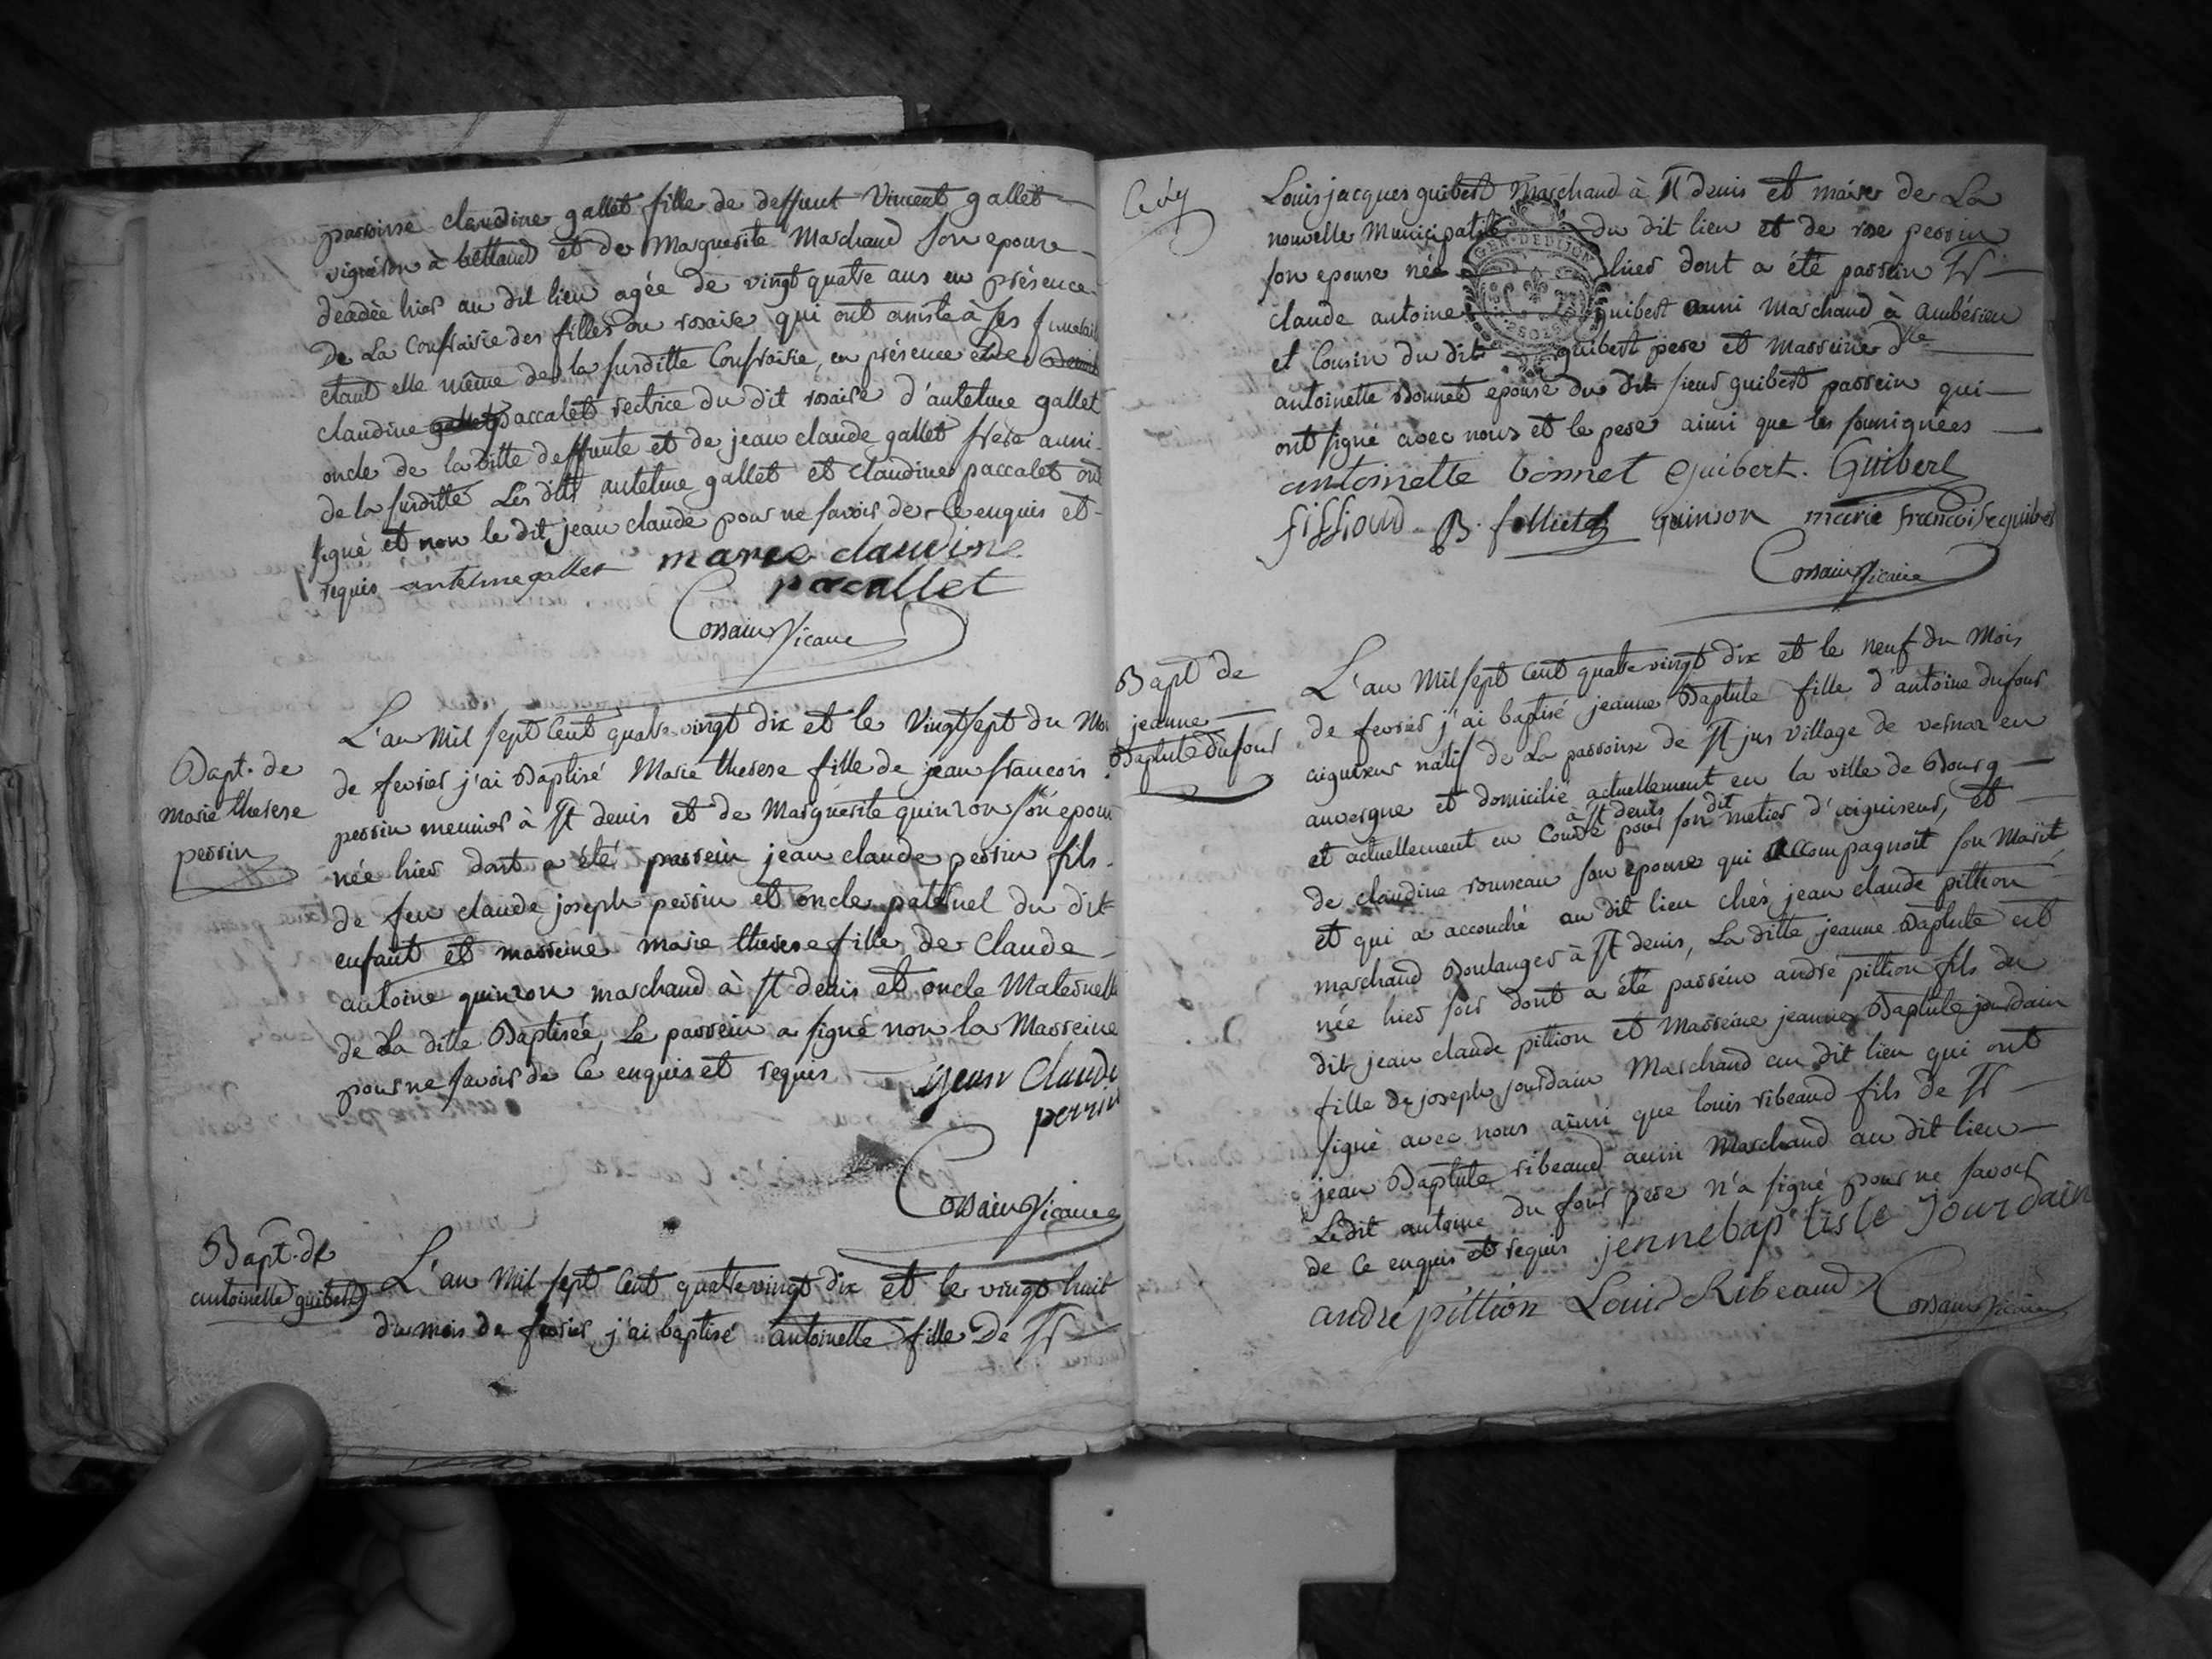 paroisse claudine gallet fille de deffunt Vincent gallet
vigneron à bettand et de Marguerite Marchand son epouse
décédée hier au dit lieu agée de vingt quatre ans en présence
De La Confrairie des filles du rosaire qui ont assisté à ses funerail
etant elle même de la susditte Confrairie, en présence de
claudine paccalet rectrice du dit rosaire d'antelme gallet
oncle de la ditte deffunte et de jean claude gallet frere aussi
de la susditte Les dits antelme gallet et claudine paccalet ont
signé et non le dit jean claude pour ne savoir de ce enquis et
requis antelme gallet marie claudine
pacallet
Cossain Vicaire
Bapt. de
marie therese
perrin
L'an Mil sept Cent quatre vingt dix et le Vingt sept du Moi
de fevrier j'ai Baptisé Marie therese fille de jean francois
perrin meunier à St denis et de Marguerite quinson son epouse
née hier dont a été parrein jean claude perrin fils
de feu claude joseph perrin et oncle paternel du dit
enfant et marreine marie therese fille de Claude
antoine quinson marchand à St denis et oncle Maternelle
de La ditte Baptisée, Le parrein a signé non la Marreine
pour ne savoir de Ce enquis et requis jean Claude
perrin
Cossain Vicaire
Bapt. de
antoinette guibert
L'an Mil sept Cent quatre vingt dix et le vingt huit
du mois de fevrier j'ai baptisé antoinette fille De Sr
Louis jacques guibert Marchand à St denis et maire de La
nouvelle Municipalité du dit lieu et de rose perrin
son epouse née hier dont a été parrein Sr
GEN. DE DIJON
claude antoine guibert aussi Marchand à ambérieu
et Cousin du dit guibert pere et marreine dlle
antoinette Bonnet epouse du dit sieur guibert parrein qui
ont signé avec nous et le pere ainsi que les soussignées
antoinette bonnet Guibert. Guibert
fissioud B. folliet quinson marie francoise guibert
Cossain Vicaire
Bapt de
jeanne
Baptiste dufour
L'an Mil sept Cent quatre vingt dix et le neuf du Mois
de fevrier j'ai baptisé jeanne Baptiste fille d'antoine dufour
aiguiseur natif de La parroisse de St jus village de vernar en
auvergne et domicilié actuellement en la ville de Bourg
à St denis dit
et actuellement en Course pour son metier d'aiguiseur, et
de claudine rousseau son epouse qui accompagnoit son Marit
et qui a accouché au dit lieu chés jean claude pittion
marchand Boulanger à St denis, La ditte jeanne Baptiste est
née hier soir dont a été parrein andré pittion fils du
dit jean claude pittion et Marreine jeanne Baptiste jourdain
fille de joseph jourdain Marchand au dit lieu qui ont
signé avec nous ainsi que louis ribeaud fils de Sr
jean Baptiste ribeaud aussi Marchand au dit lieu
Ledit antoine du four pere n'a signé pour ne savoir
de Ce enquis et requis jennebaptiste Jourdain
andré pittion Louis Ribeaud Cossain Vicaire